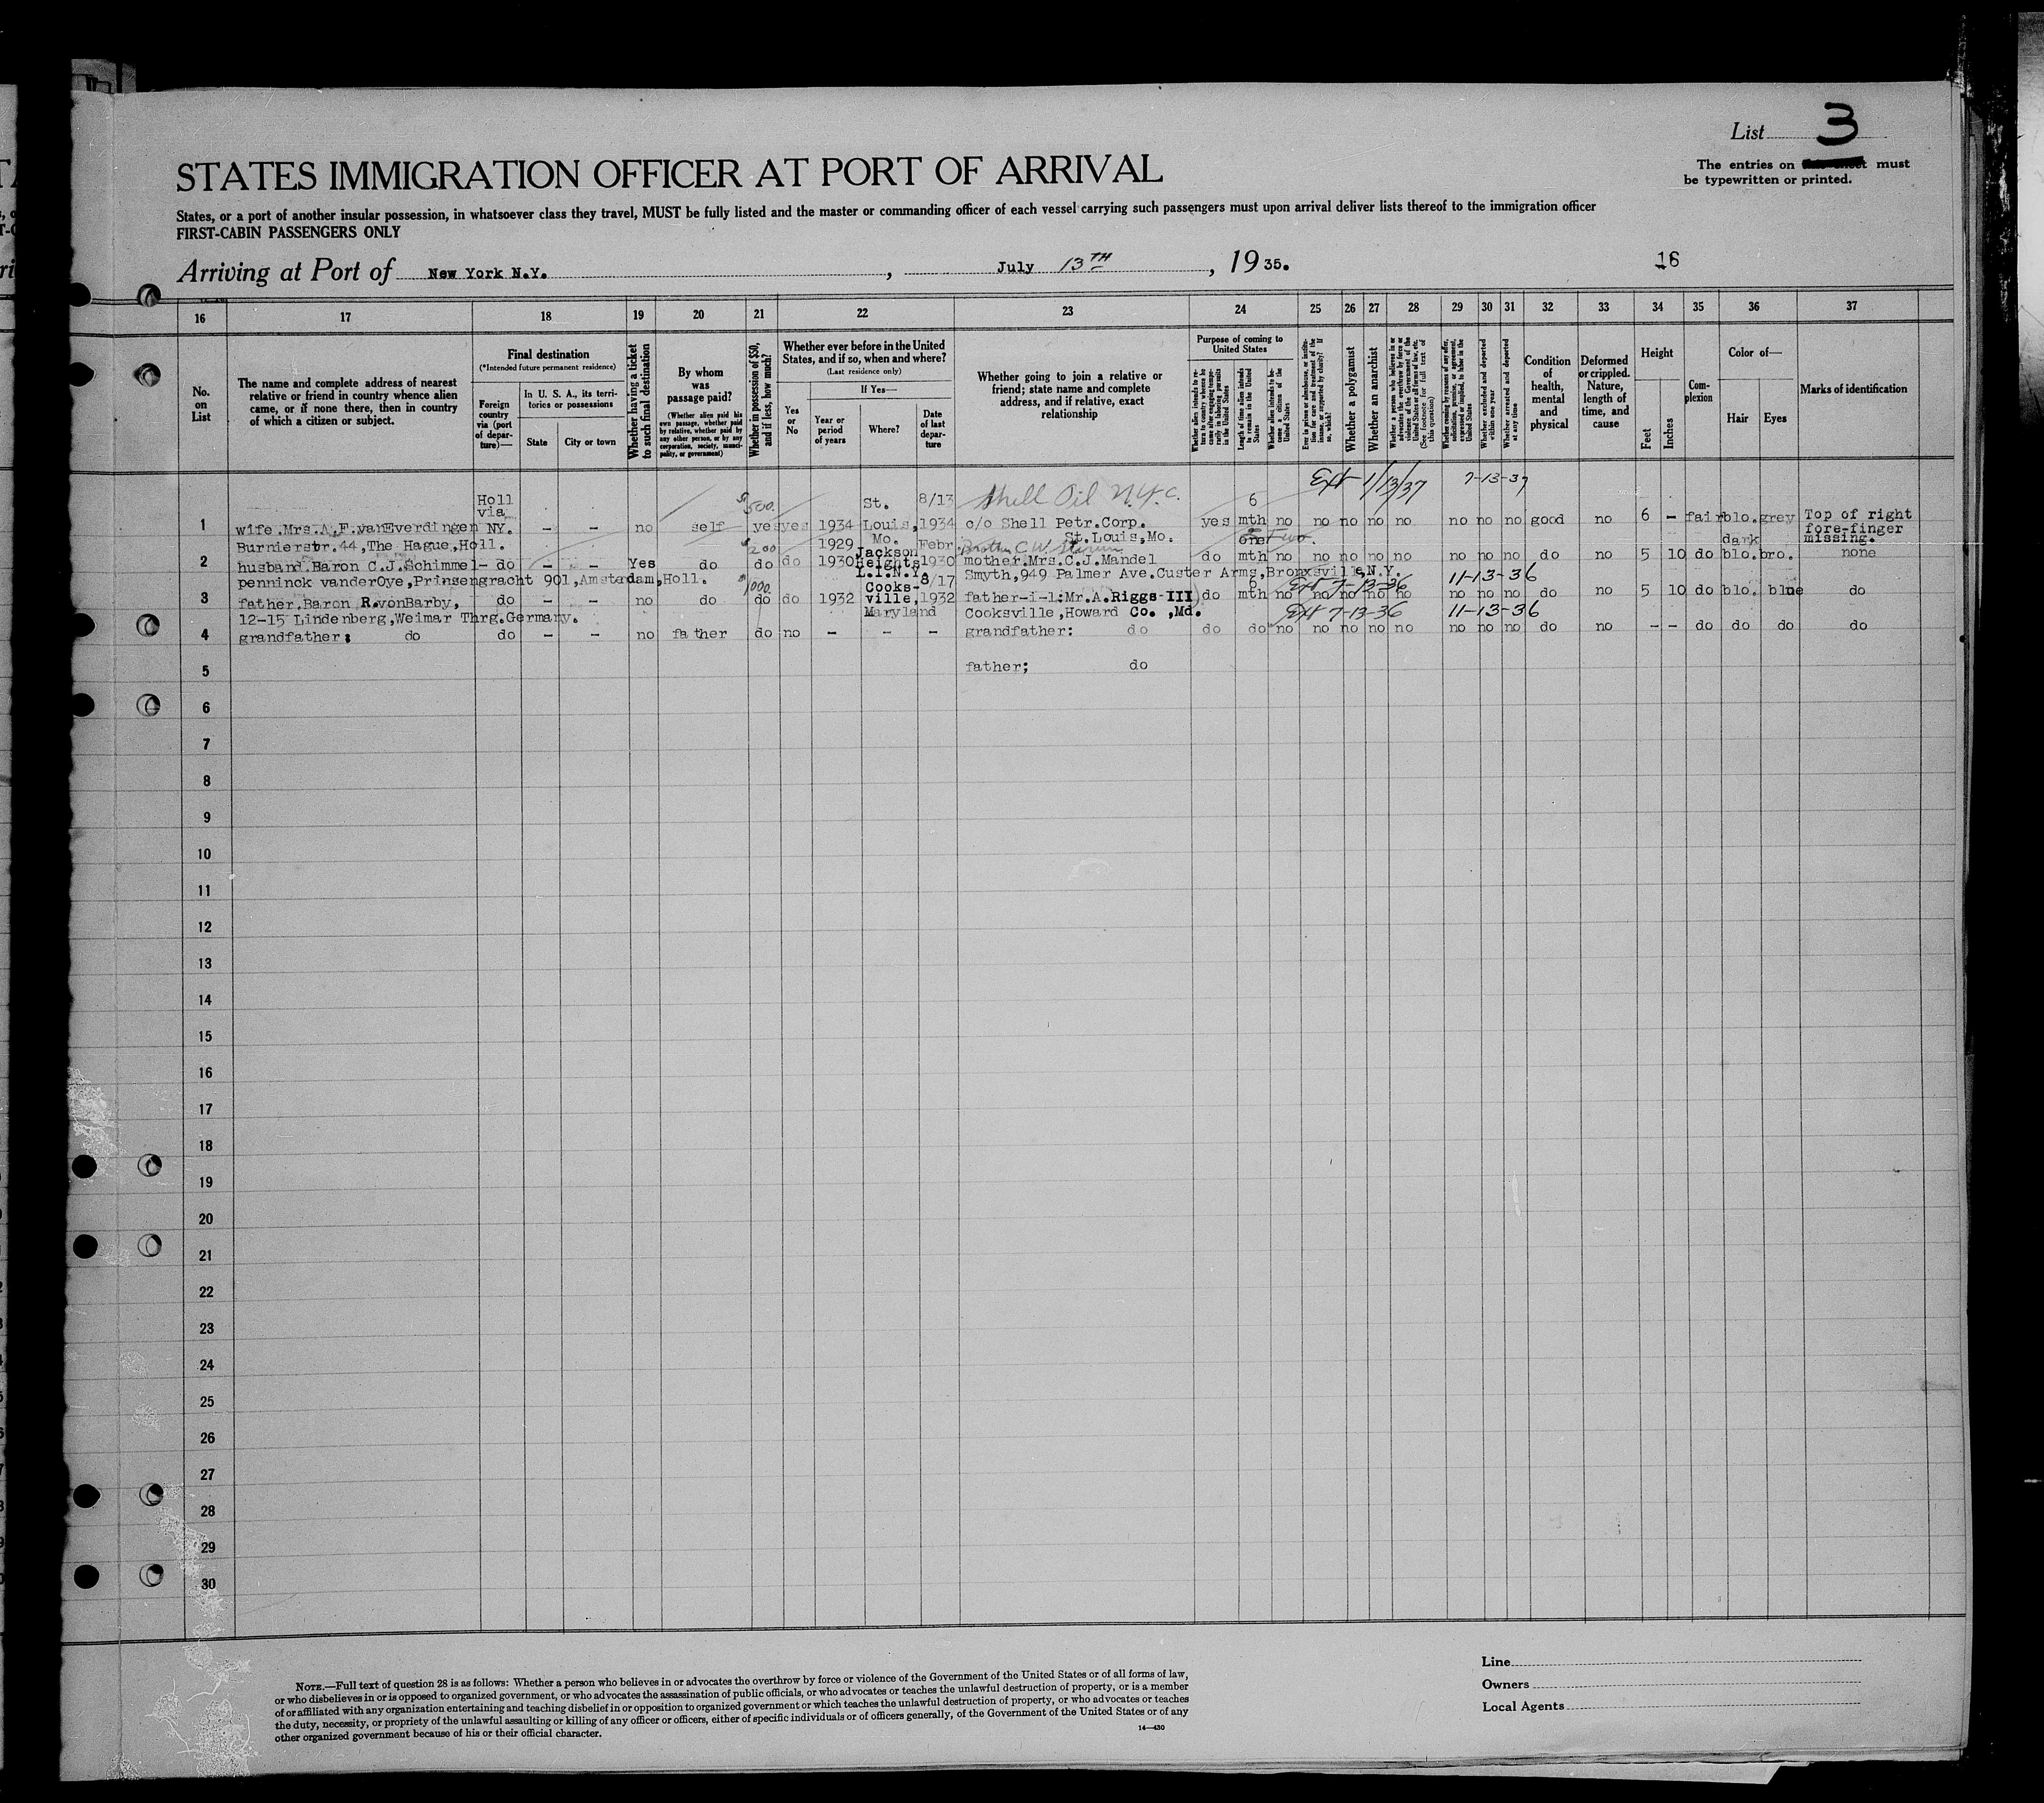 List 3
STATES IMMIGRATION OFFICER AT PORT OF ARRIVAL
The entries on this sheet must
be typewritten or printed.
States, or a port of another insular possession, in whatsoever class they travel, MUST be fully listed and the master or commanding officer of each vessel carrying such passengers must upon arrival deliver lists thereof to the immigration officer
FIRST-CABIN PASSENGERS ONLY
Arriving at Port of New York N.Y. , July 13TH , 1935.
16
16 17 18 19 20 21 22 23 24 25 26 27 28 29 30 31 32 33 34 35 36 37
No. on List
The name and complete address of nearest relative or friend in country whence alien came, or if none there, then in country of which a citizen or subject.
Final destination
(*Intended future permanent residence)
Foreign country via (port of departure)—
In U. S. A., its territories or possessions
State
City or town
Whether having a ticket to such final destination
By whom was passage paid?
(Whether alien paid his own passage, whether paid by relative, whether paid by any other person, or by any corporation, society, municipality, or government)
Whether in possession of $50, and if less, how much?
Whether ever before in the United States, and if so, when and where?
(Last residence only)
If Yes—
Yes or No
Year or period of years
Where?
Date of last departure
Whether going to join a relative or friend; state name and complete address, and if relative, exact relationship
Purpose of coming to United States
Length of time alien intends to remain in the United States
Whether alien intends to become a citizen of the United States
Whether a polygamist
Whether an anarchist
(See footnote for full text of this question)
Whether excluded and deported within one year
Whether arrested and deported at any time
Condition of health, mental and physical
Deformed or crippled. Nature, length of time, and cause
Height
Feet
Inches
Complexion
Color of—
Hair
Eyes
Marks of identification
Ext 1/13/37 7-13-37
Holl via $500. St. 8/13 Shell Oil N.Y.C. 6
1 wife.Mrs.A.F.vanEverdingen NY. - - no self yes yes 1934 Louis, 1934 c/o Shell Petr.Corp. yes mth no no no no no no no no good no 6 - fair blo. grey Top of right
Burnierstr.44,The Hague,Holl. $200 1929 Mo. Febr St.Louis,Mo. dark fore-finger missing.
2 husband.Baron C.J.Schimmel- do - - Yes do do do 1930 Jackson Heights 1930 mother.Mrs.C.J.Mandel do mth no no no no no no no no do no 5 10 do blo. bro. none
penninck vanderOye,Prinsengracht 901,Amsterdam,Holl. $1000. L.I.N.Y. 8/17 Smyth,949 Palmer Ave.Custer Arms,Bronxsville,N.Y. 6 Ext 7-13-36 11-13-36
3 father.Baron R.vonBarby, do - - no do do do 1932 Cooksville, 1932 father-i-l:Mr.A.Riggs-III do mth no no no no no no no no do no 5 10 do blo. blue do
12-15 Lindenberg,Weimar Thrg.Germany. Maryland Cooksville,Howard Co. ,Md. Ext 7-13-36 11-13-36
4 grandfather: do do - - no father do no - - - grandfather: do do do no no no no no no no no do no - - do do do do
5 father; do
6
7
8
9
10
11
12
13
14
15
16
17
18
19
20
21
22
23
24
25
26
27
28
29
30
NOTE.—Full text of question 28 is as follows: Whether a person who believes in or advocates the overthrow by force or violence of the Government of the United States or of all forms of law,
or who disbelieves in or is opposed to organized government, or who advocates the assassination of public officials, or who advocates or teaches the unlawful destruction of property, or is a member
of or affiliated with any organization entertaining and teaching disbelief in or opposition to organized government or which teaches the unlawful destruction of property, or who advocates or teaches
the duty, necessity, or propriety of the unlawful assaulting or killing of any officer or officers, either of specific individuals or of officers generally, of the Government of the United States or of any
other organized government because of his or their official character.
14—430
Line
Owners
Local Agents